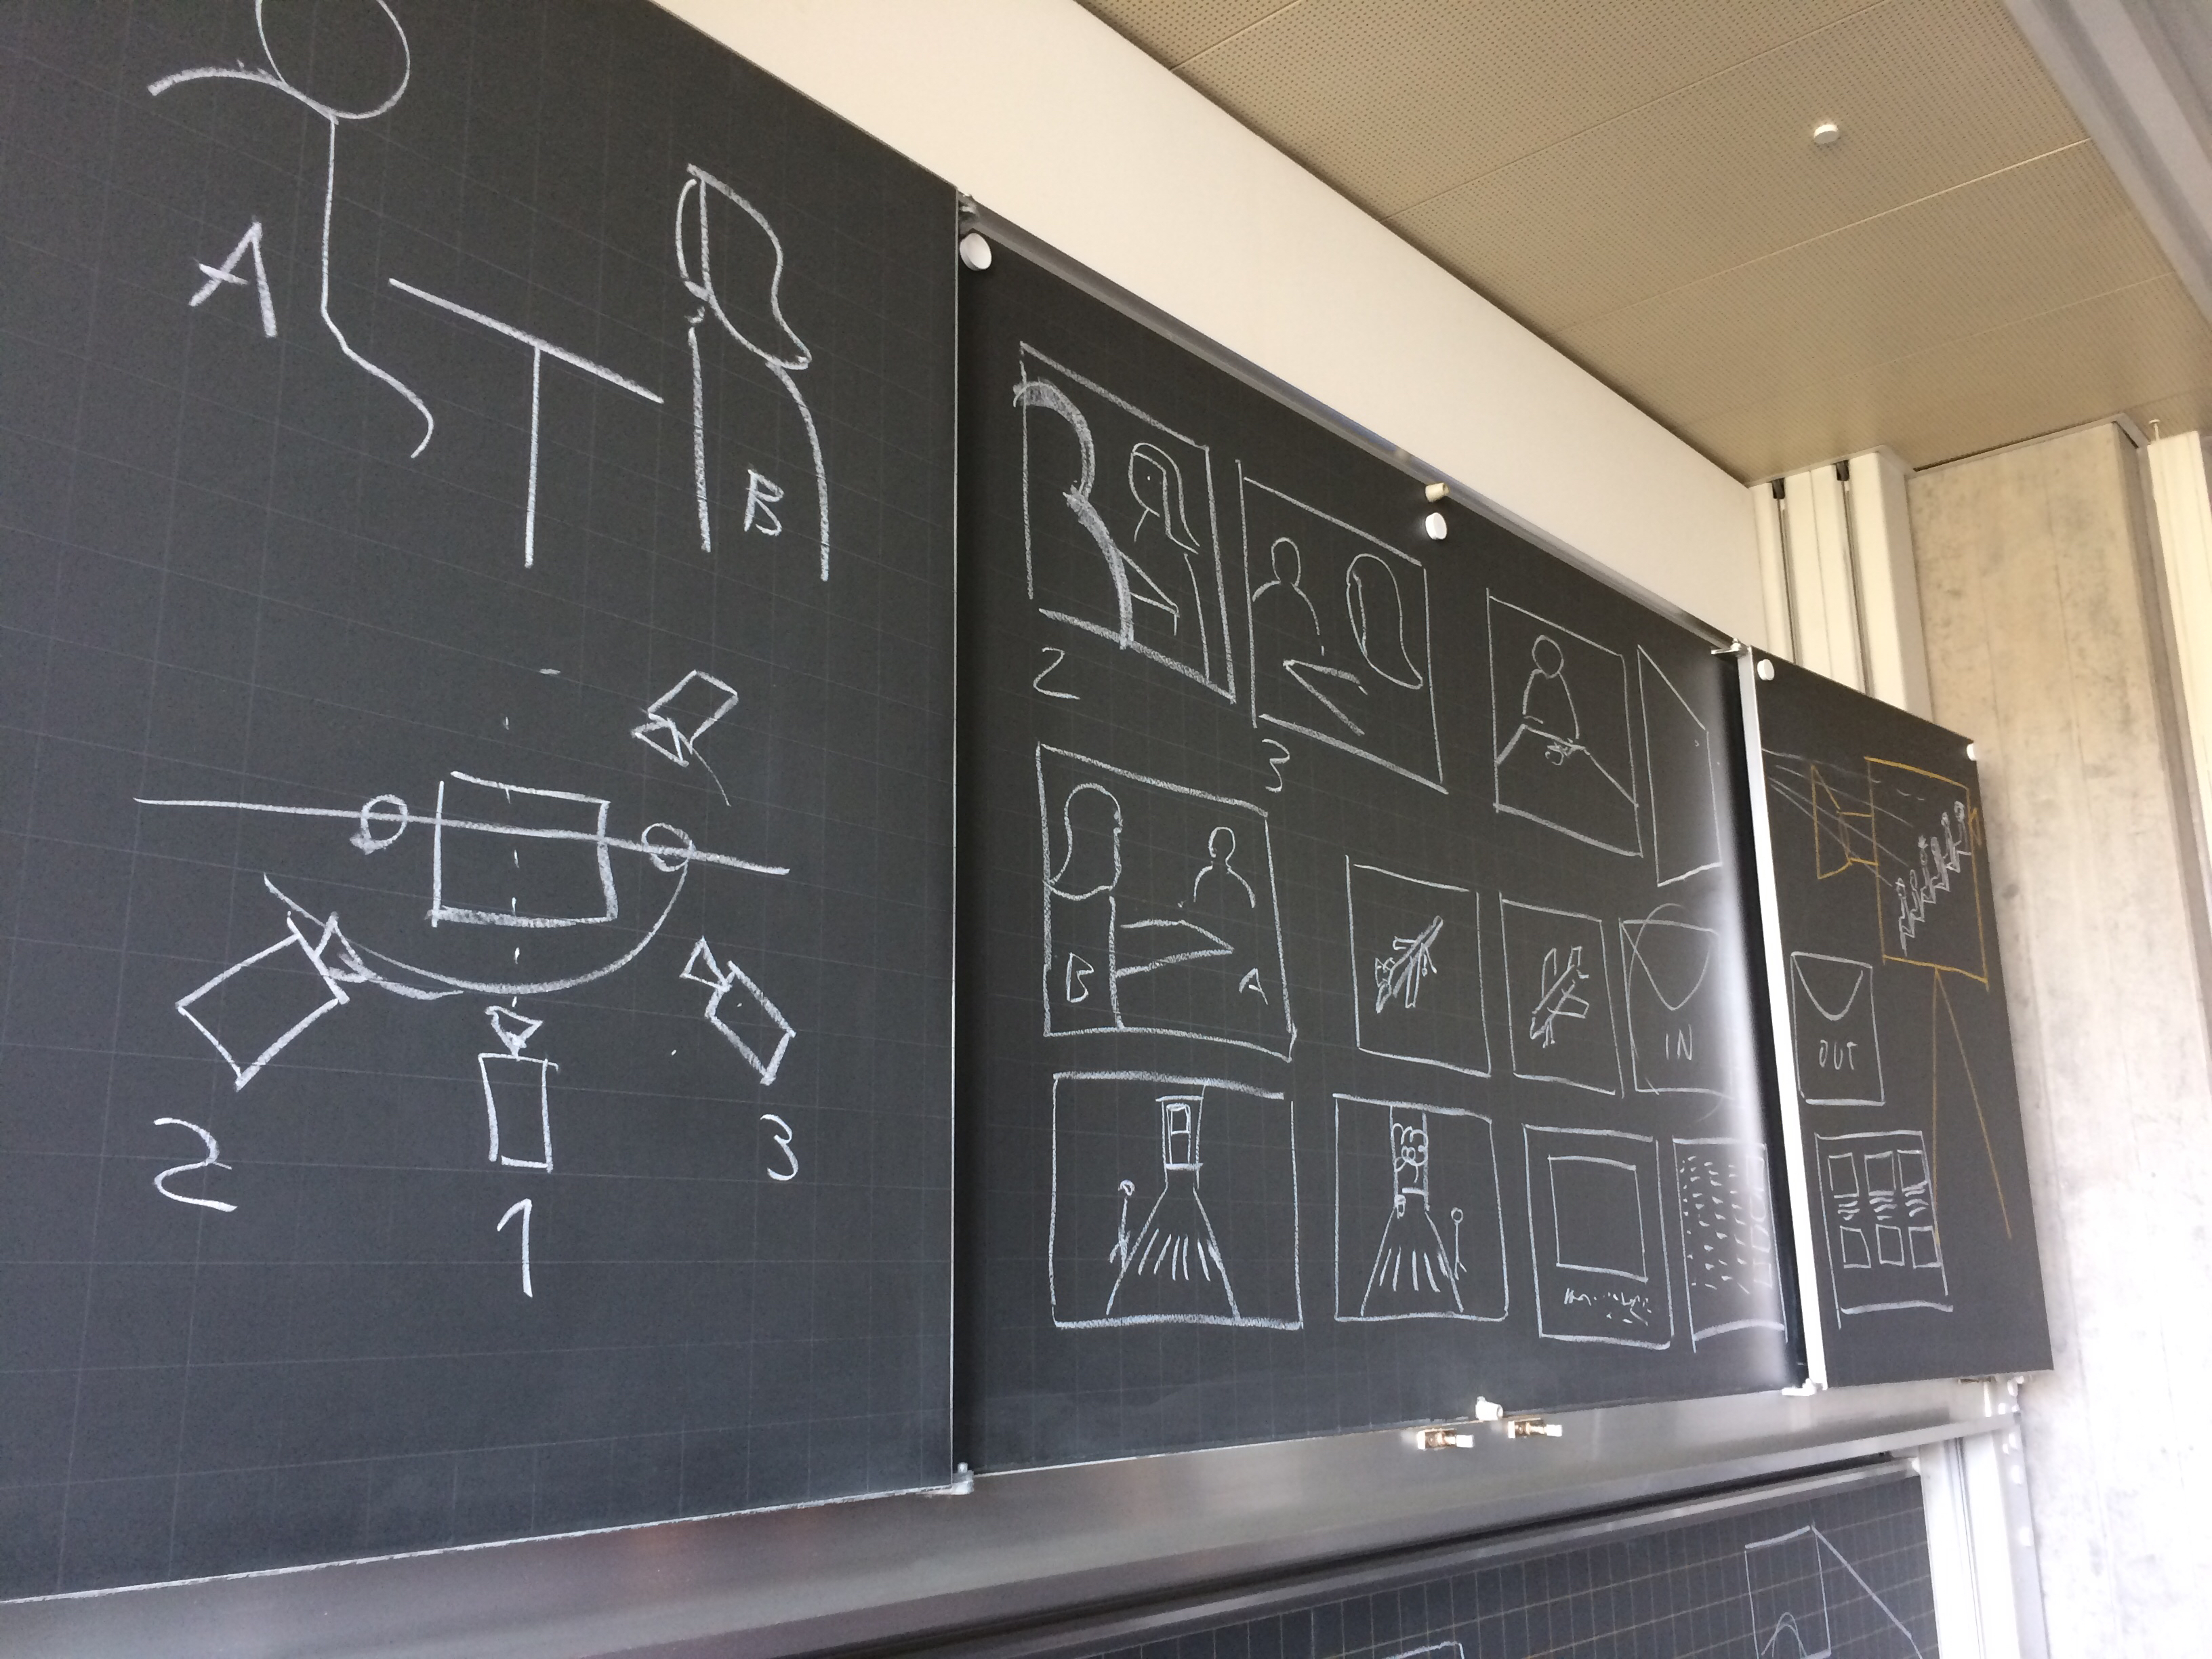 A
B
2
1
3
2
3
B
A
IN
OUT